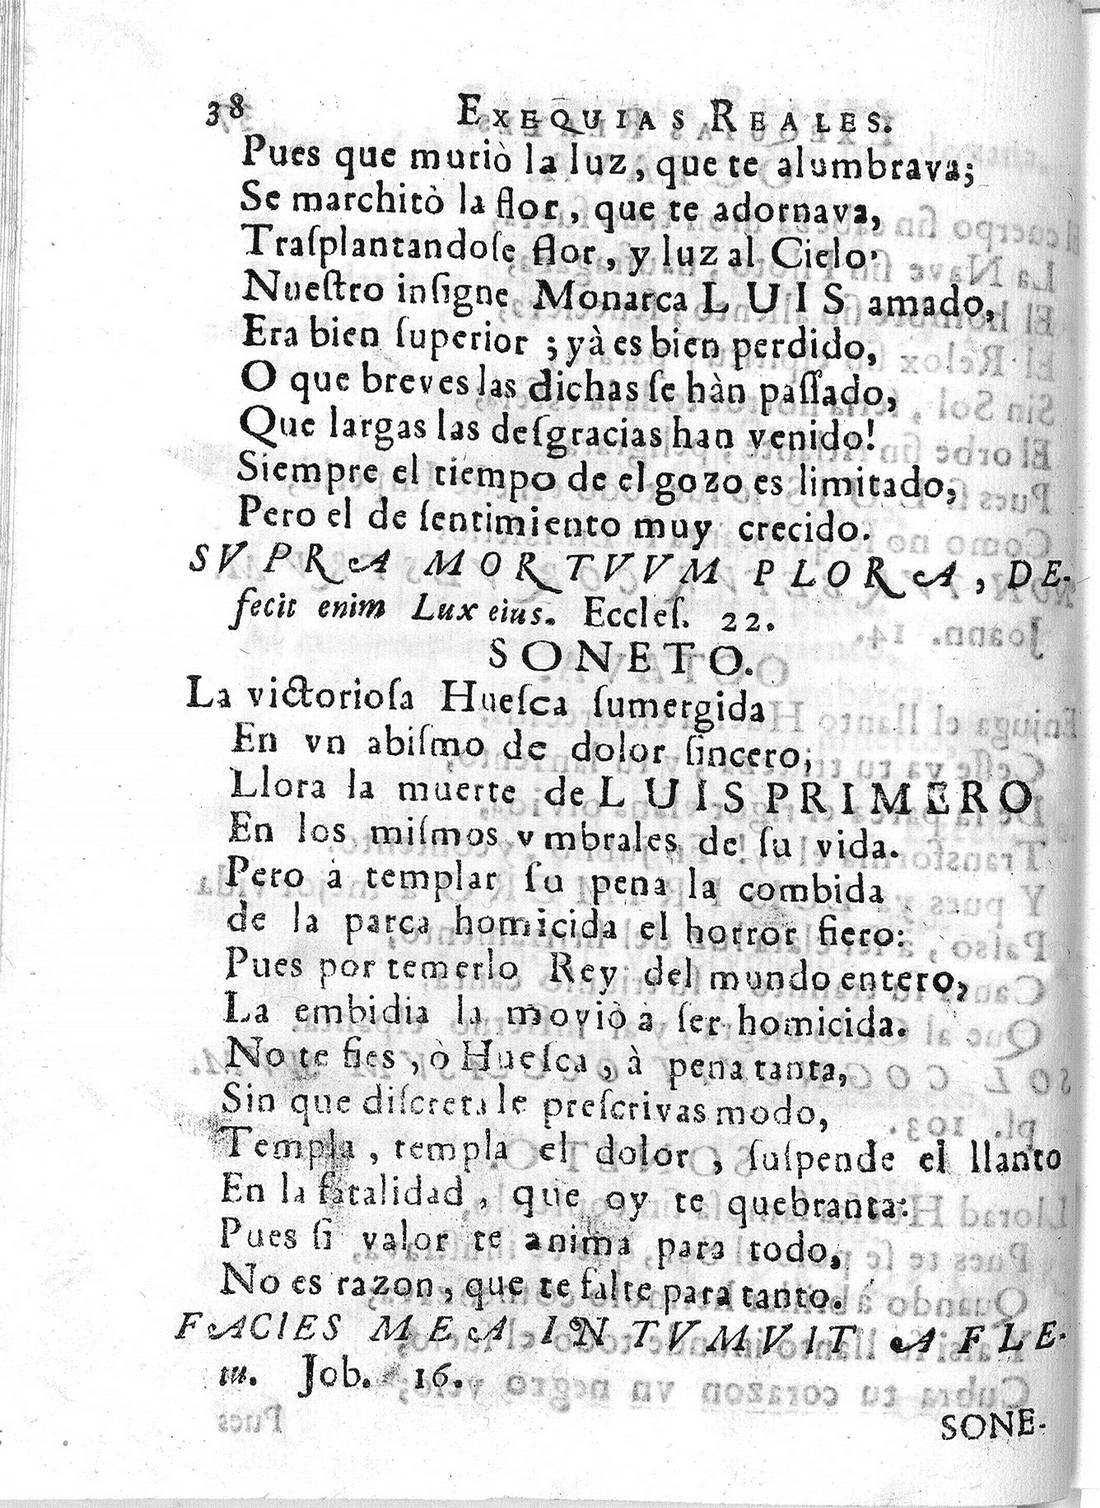 38 EXEQUIAS REALES.
Pues que muriò la luz, que te alumbrava;
Se marchitò la flor, que te adornava,
Traſplantandoſe flor, y luz al Cielo.
Nueſtro inſigne Monarca LUIS amado,
Era bien ſuperior; yà es bien perdido,
O que breves las dichas ſe hàn paſſado,
Que largas las deſgracias han venido!
Siempre el tiempo de el gozo es limitado,
Pero el de ſentimiento muy crecido.
SVPRA MORTVVM PLORA, DE-
fecit enim Lux eius. Eccleſ. 22.
SONETO.
La victorioſa Hueſca ſumergida
En vn abiſmo de dolor ſincero;
Llora la muerte de LUIS PRIMERO
En los miſmos vmbrales de ſu vida.
Pero à templar ſu pena la combida
de la parca homicida el horror fiero:
Pues por temerlo Rey del mundo entero,
La embidia la moviò à ſer homicida.
No te fies, ò Hueſca, à pena tanta,
Sin que diſcreta le preſcrivas modo,
Templa, templa el dolor, ſuſpende el llanto
En la fatalidad, que oy te quebranta:
Pues ſi valor te anima para todo,
No es razon, que te falte para tanto.
FACIES MEA INTVMVIT A FLE-
tu. Job. 16.
SONE-